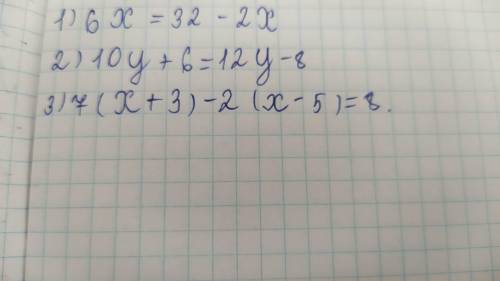 1) 6x = 32 - 2x
2) 10y + 6 = 12y - 8
3) 7(x + 3) - 2(x - 5) = 8.